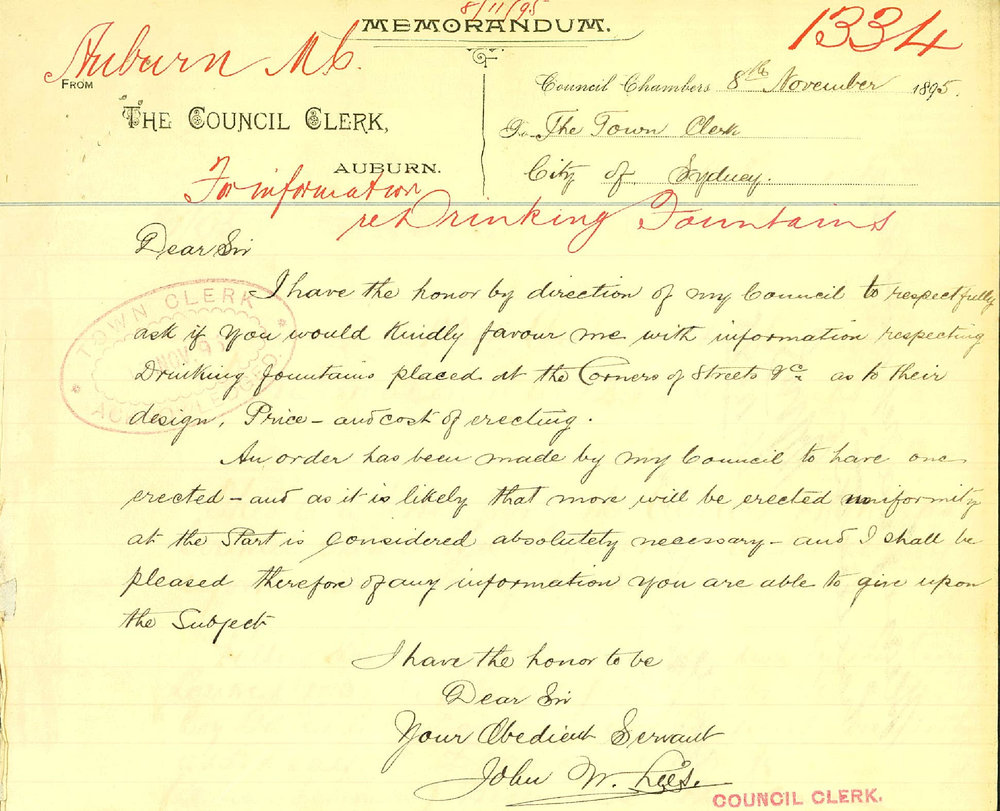 8/11/95
MEMORANDUM.
1334
Auburn M.C.
FROM
THE COUNCIL CLERK,
AUBURN.
Council Chambers 8th November 1895.
To The Town Clerk
City of Sydney.
For information
re Drinking Fountains
Dear Sir
I have the honor by direction of my Council to respectfully
ask if you would kindly favour me with information respecting
Drinking fountains placed at the Corners of Streets &c. as to their
design, Price – and cost of erecting.
An order has been made by my Council to have one
erected – and as it is likely that more will be erected uniformity
at the Start is Considered absolutety necessary – and I shall be
pleased therefore of any information you are able to give upon
the Subject
I have the honor to be
Dear Sir
Your Obedient Servant
John W. Lees.
COUNCIL CLERK.
TOWN CLERK
NOV 9